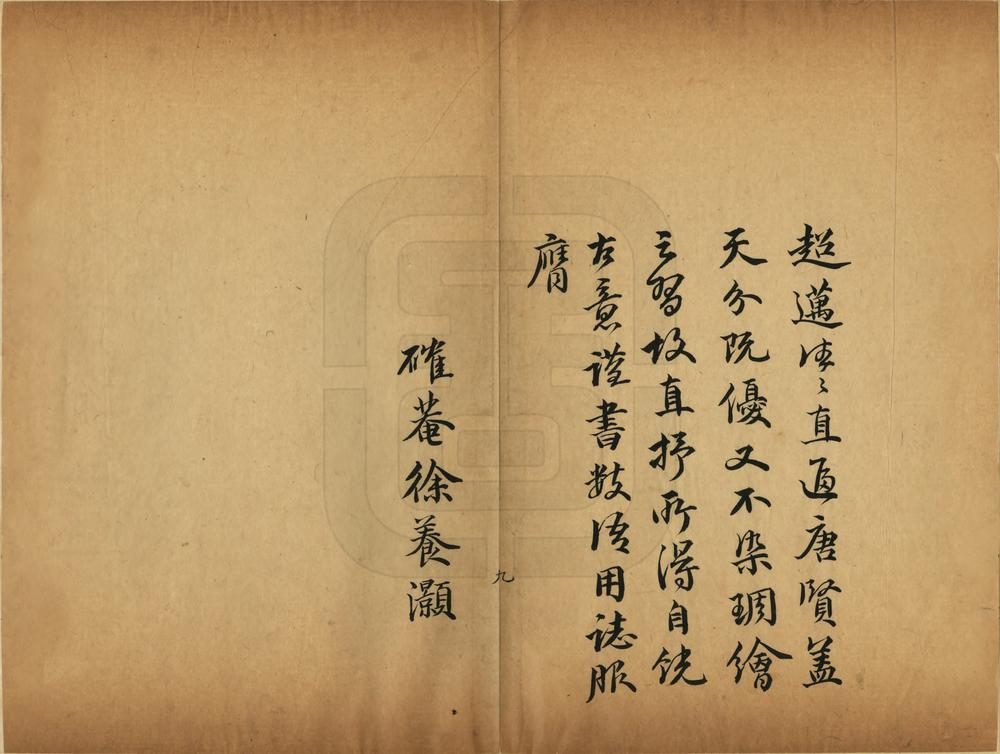 超邁往〻直逼唐賢盖
天分既優又不染琱繪
之習故直抒所得自饒
古意謹書數語用誌服
膺
確菴徐養灝
九